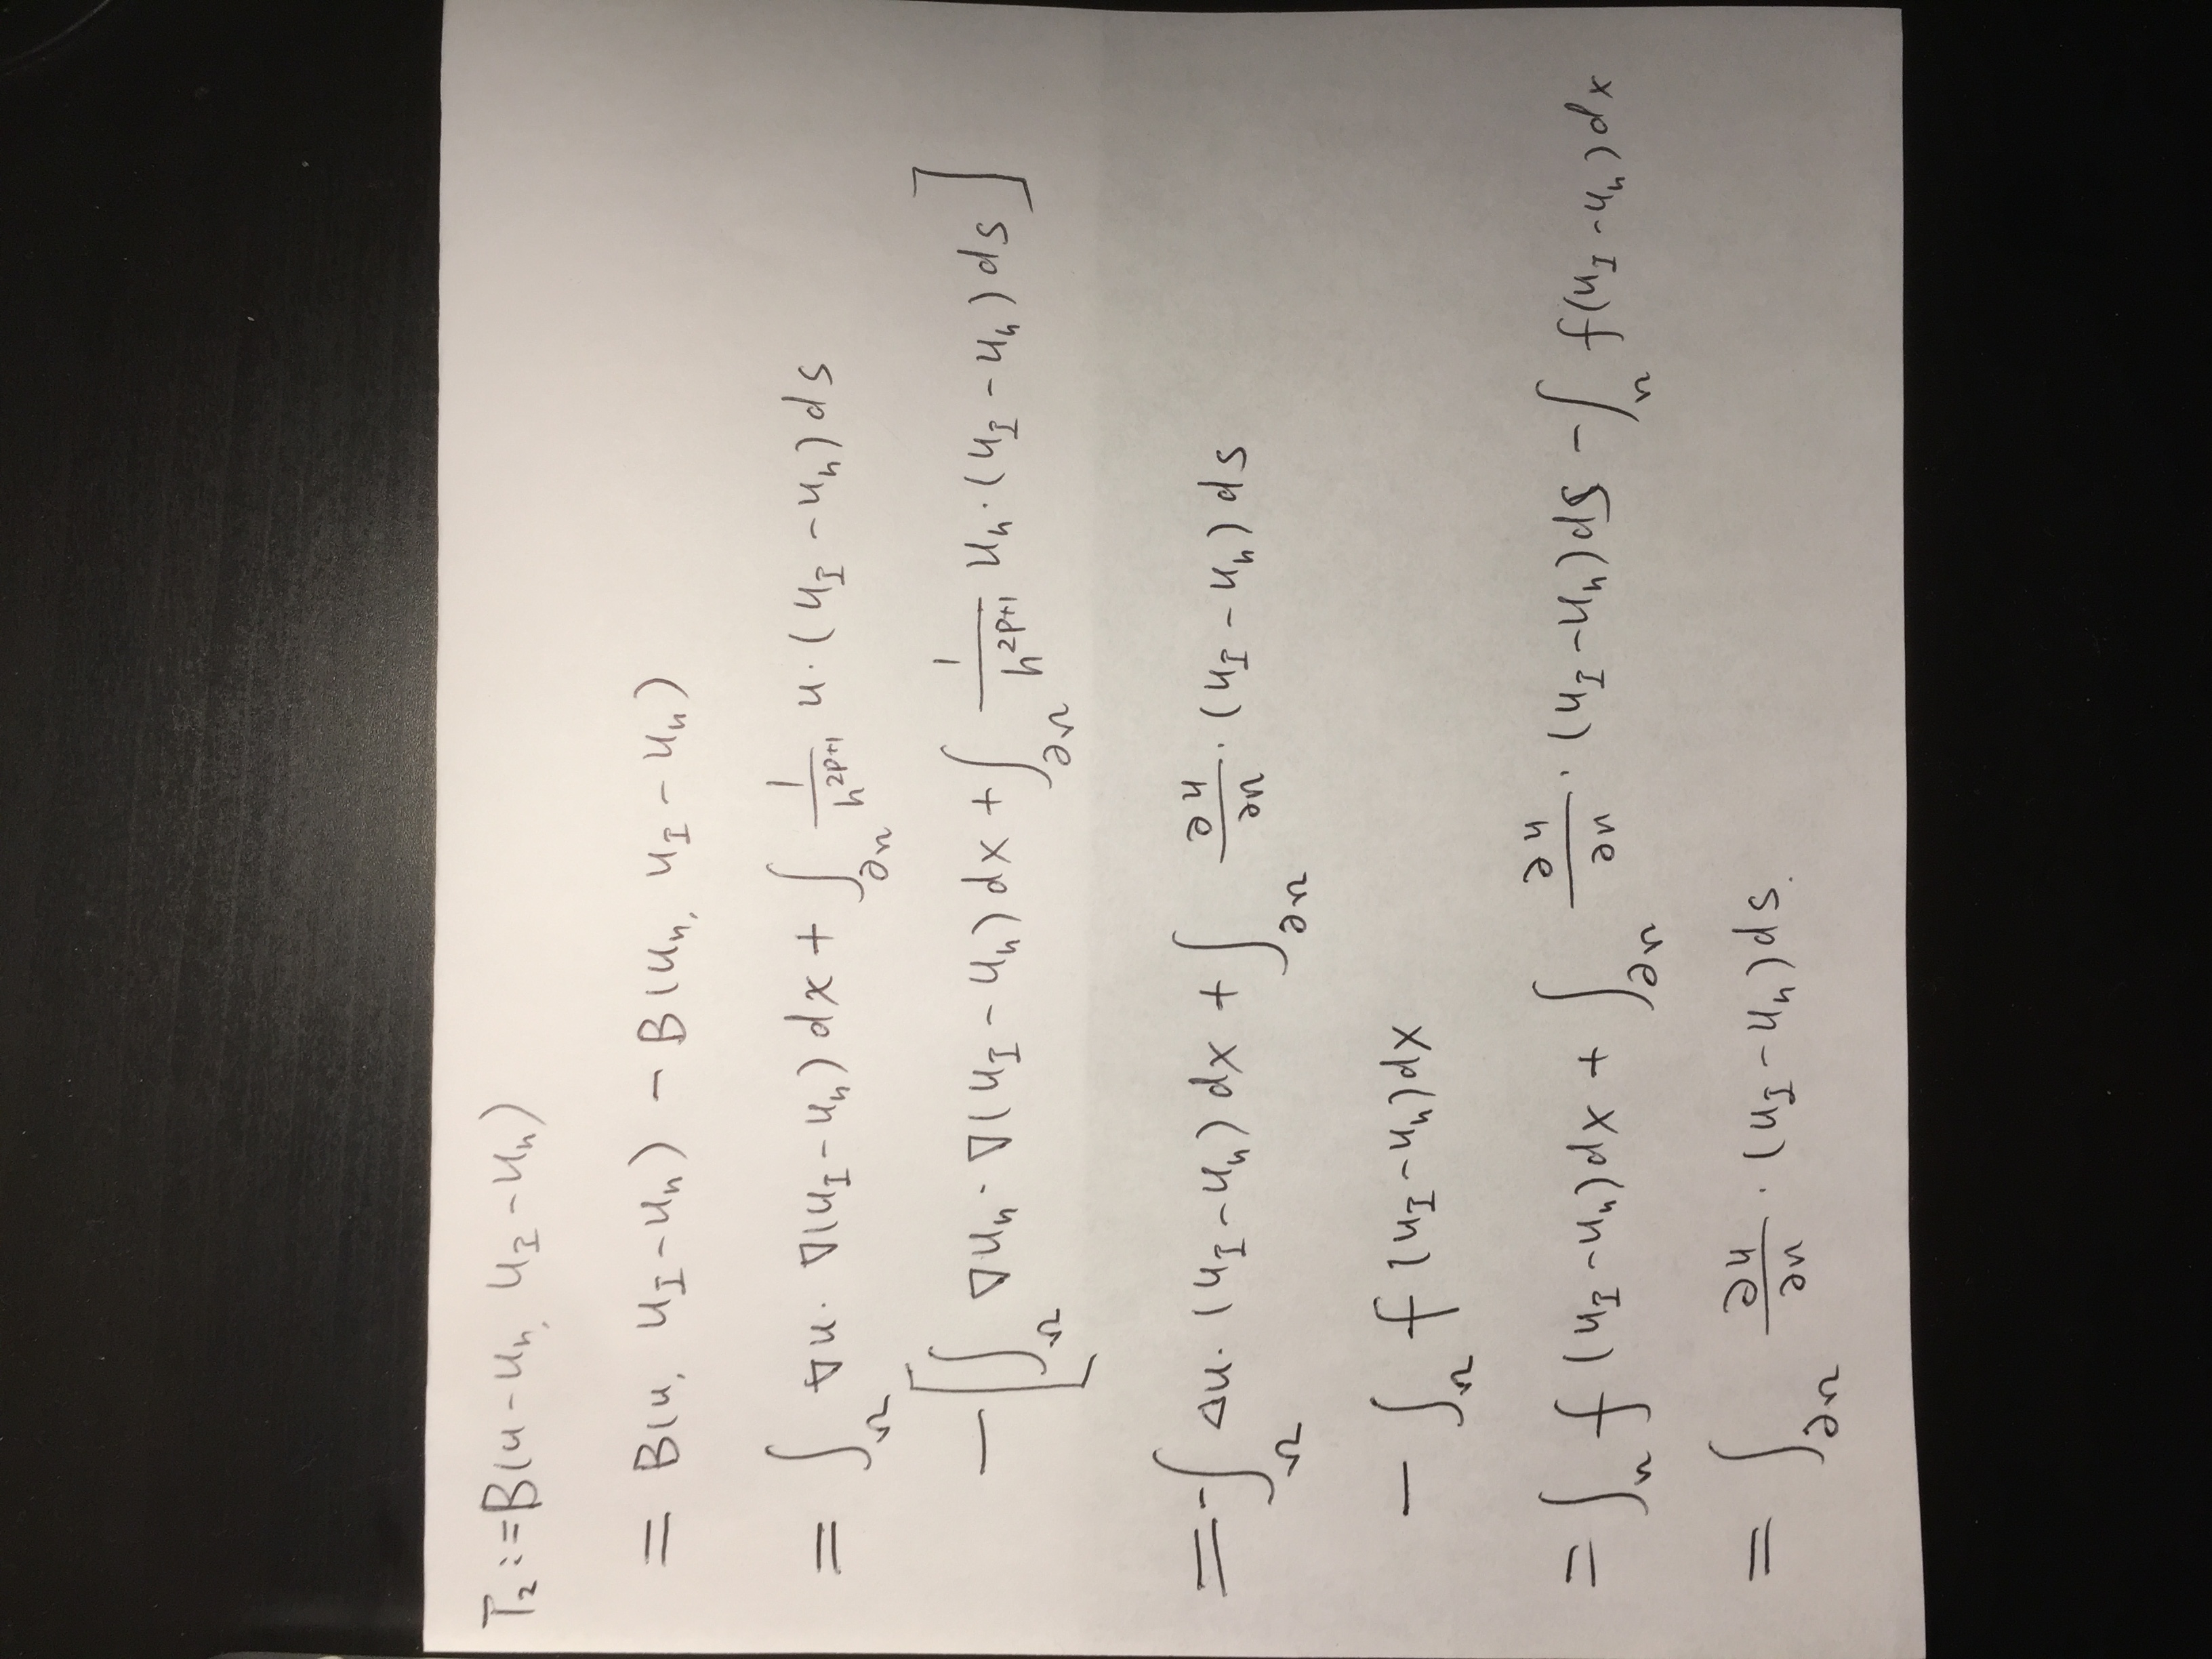 T₂ := B(u - uₕ, u_I - uₕ)
= B(u, u_I - uₕ) - B(uₕ, u_I - uₕ)
= ∫_Ω ∇u · ∇(u_I - uₕ) dx + ∫_∂Ω 1/h^{2p+1} u · (u_I - uₕ) ds
- [∫_Ω ∇uₕ · ∇(u_I - uₕ) dx + ∫_∂Ω 1/h^{2p+1} uₕ · (u_I - uₕ) ds]
= -∫_Ω Δu · (u_I - uₕ) dx + ∫_∂Ω ∂u/∂n · (u_I - uₕ) ds
- ∫_Ω f (u_I - uₕ) dx
= ∫_Ω f (u_I - uₕ) dx + ∫_∂Ω ∂u/∂n · (u_I - uₕ) ds - ∫_Ω f(u_I - uₕ) dx
= ∫_∂Ω ∂u/∂n · (u_I - uₕ) ds.